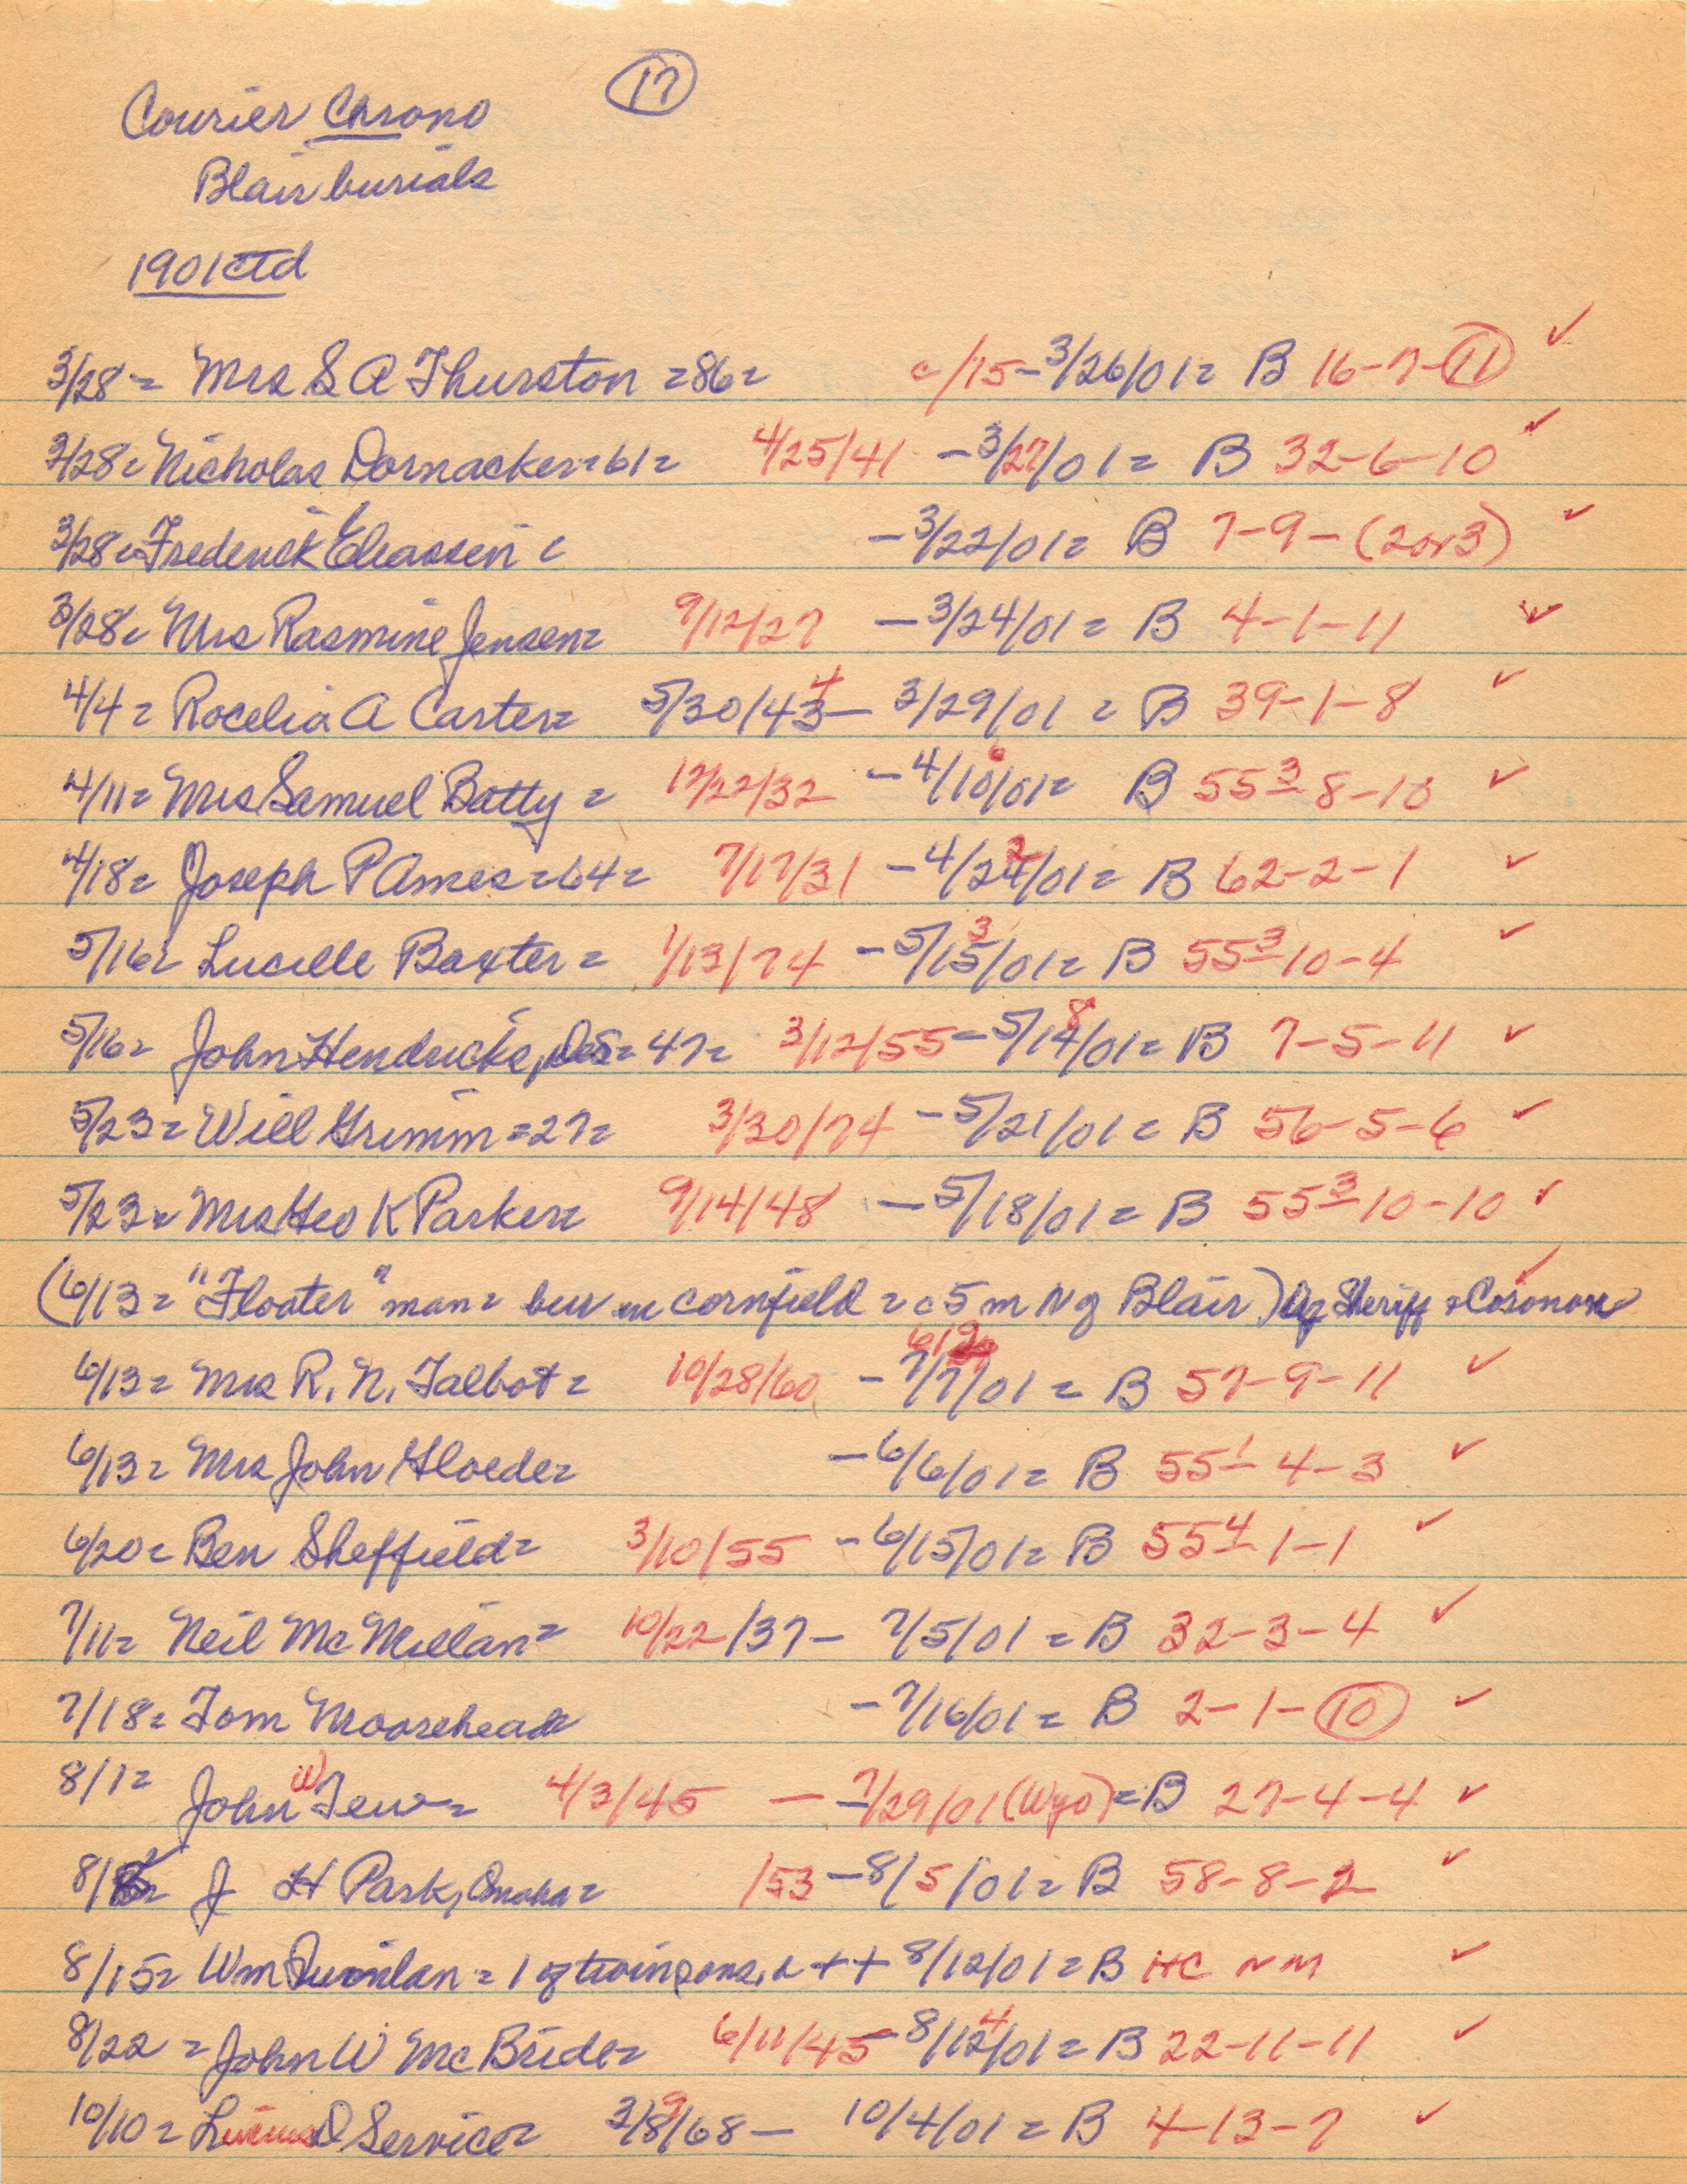 17
Courier Chrono
Blair burials
1901 ctd
3/28 = Mrs S A Thurston = 86 = c/15 - 3/26/01 = B 16-7-11 ✓
3/28 = Nicholas Dornacker = 61 = 4/25/41 - 3/27/01 = B 32-6-10 ✓
3/28 = Frederick Eliassen = - 3/22/01 = B 7-9-(2or3) ✓
3/28 = Mrs Rasmine Jensen = 9/12/27 - 3/24/01 = B 4-1-11 ✓
4/4 = Rocelia A Carter = 5/30/43 4 - 3/29/01 = B 39-1-8 ✓
4/11 = Mrs Samuel Batty = 12/22/32 - 4/10/01 = B 55 3 8-10 ✓
4/18 = Joseph P Ames = 64 = 7/17/31 - 4/24 2/01 = B 62-2-1 ✓
5/16 = Lucille Baxter = 1/13/74 - 5/15 3/01 = B 55 3 10-4 ✓
5/16 = John Hendricks, = 47 = 3/12/55 - 5/14 8/01 = B 7-5-11 ✓
5/23 = Will Grimm = 27 = 3/30/74 - 5/21/01 = B 56-5-6 ✓
5/23 = Mrs Geo K Parker = 9/14/48 - 5/18/01 = B 55 3 10-10 ✓
(6/13 = "Floater" man = bur in cornfield = c 5 m N of Blair) by Sheriff & Coronor ✓
6/13 = Mrs R. N. Talbot = 10/28/60 - 7/7/01 = B 57-9-11 ✓
6/13 = Mrs John Gloede = - 6/6/01 = B 55 1 4-3 ✓
6/20 = Ben Sheffield = 3/10/55 - 6/15/01 = B 55 4 1-1 ✓
7/11 = Neil McMillan = 10/22/37 - 7/5/01 = B 32-3-4 ✓
7/18 = Tom Moorehead - 7/16/01 = B 2-1-10 ✓
8/1 = John W Tew = 4/3/45 - 7/29/01 (Wyo) = B 27-4-4 ✓
8/ J H Park, Omaha = /53 - 8/5/01 = B 58-8-2 ✓
8/15 = Wm Quinlan = 1 of twin sons, ++ 8/12/01 = B HC NM ✓
8/22 = John W McBride = 6/11/45 - 8/12 4/01 = B 22-11-11 ✓
10/10 = Lucius D Service = 3/8 9/68 - 10/4/01 = B 4-13-7 ✓